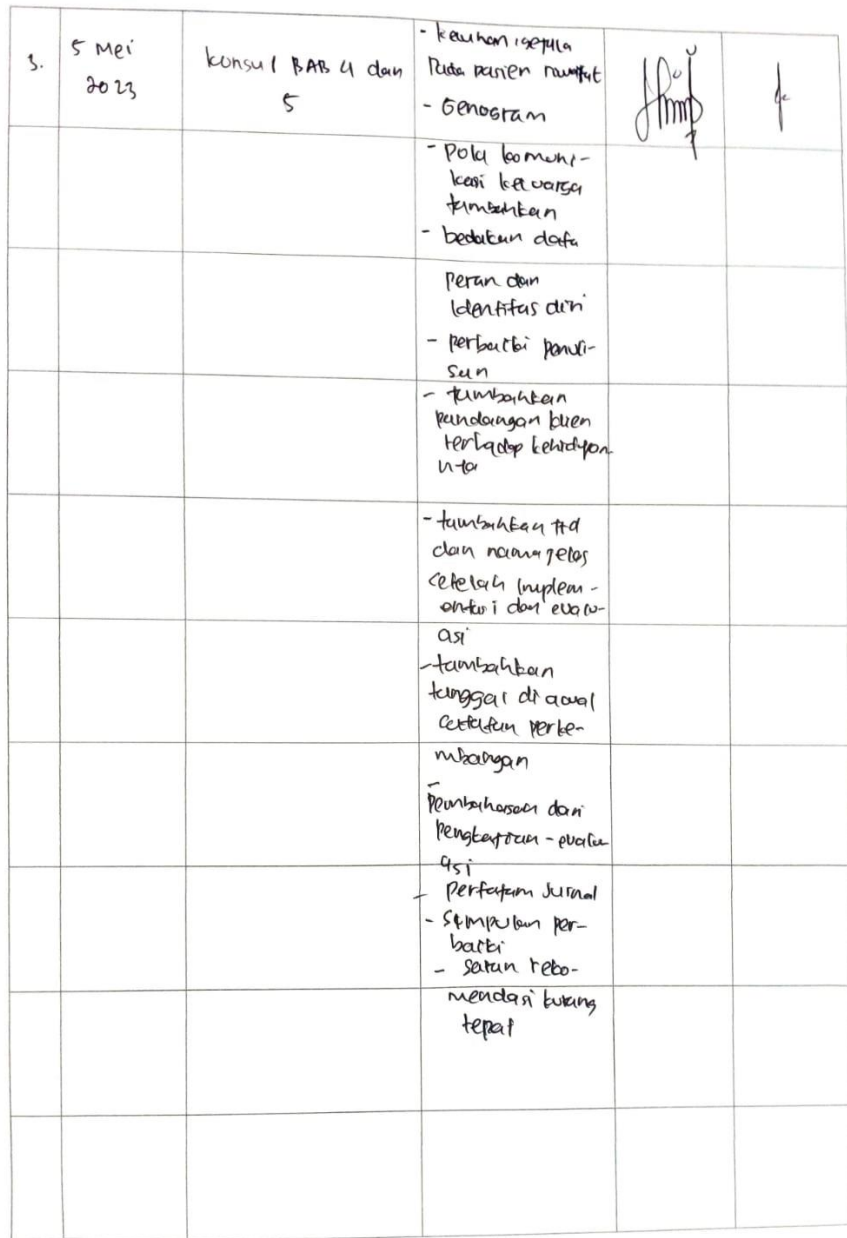 3.
5 Mei
2023
konsul BAB 4 dan
5
- keluhan, gejala
Pada pasien
- Genogram
- Pola komuni-
kasi keluarga
tambahkan
- bedakan data
peran dan
Identitas diri
- perbaiki penuli-
san
- tambahkan
pandangan klien
terhadap kehidupan
nya
- tambahkan ttd
dan nama jelas
setelah implem-
entasi dan evalu-
asi
- tambahkan
tanggal di awal
catatan perke-
mbangan
-
Pembahasan dari
Pengkajian - evalu
asi
- pertajam Jurnal
- Simpulan per-
baiki
- saran reko-
mendasi kurang
tepat